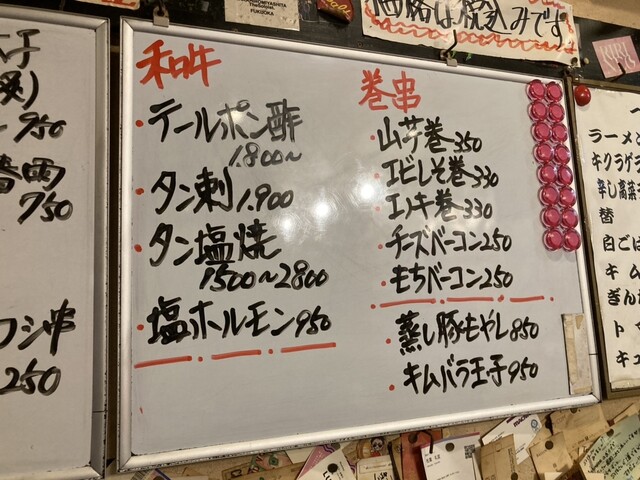 価格は税込みです
FUKUOKA
和牛
・テールポン酢
1.800〜
・タン刺 1.900
・タン塩焼
1500〜2800
・塩ホルモン 950
巻串
・山芋巻 350
・エビしそ巻 330
・エノキ巻 330
・チーズベーコン 250
・もちベーコン 250
・蒸し豚もやし 850
・キムバラ玉子 950
950
750
シ串
250
ラーメン
キクラゲ
辛し高菜
替
白ごは
キム
ぎん
ト
キュ